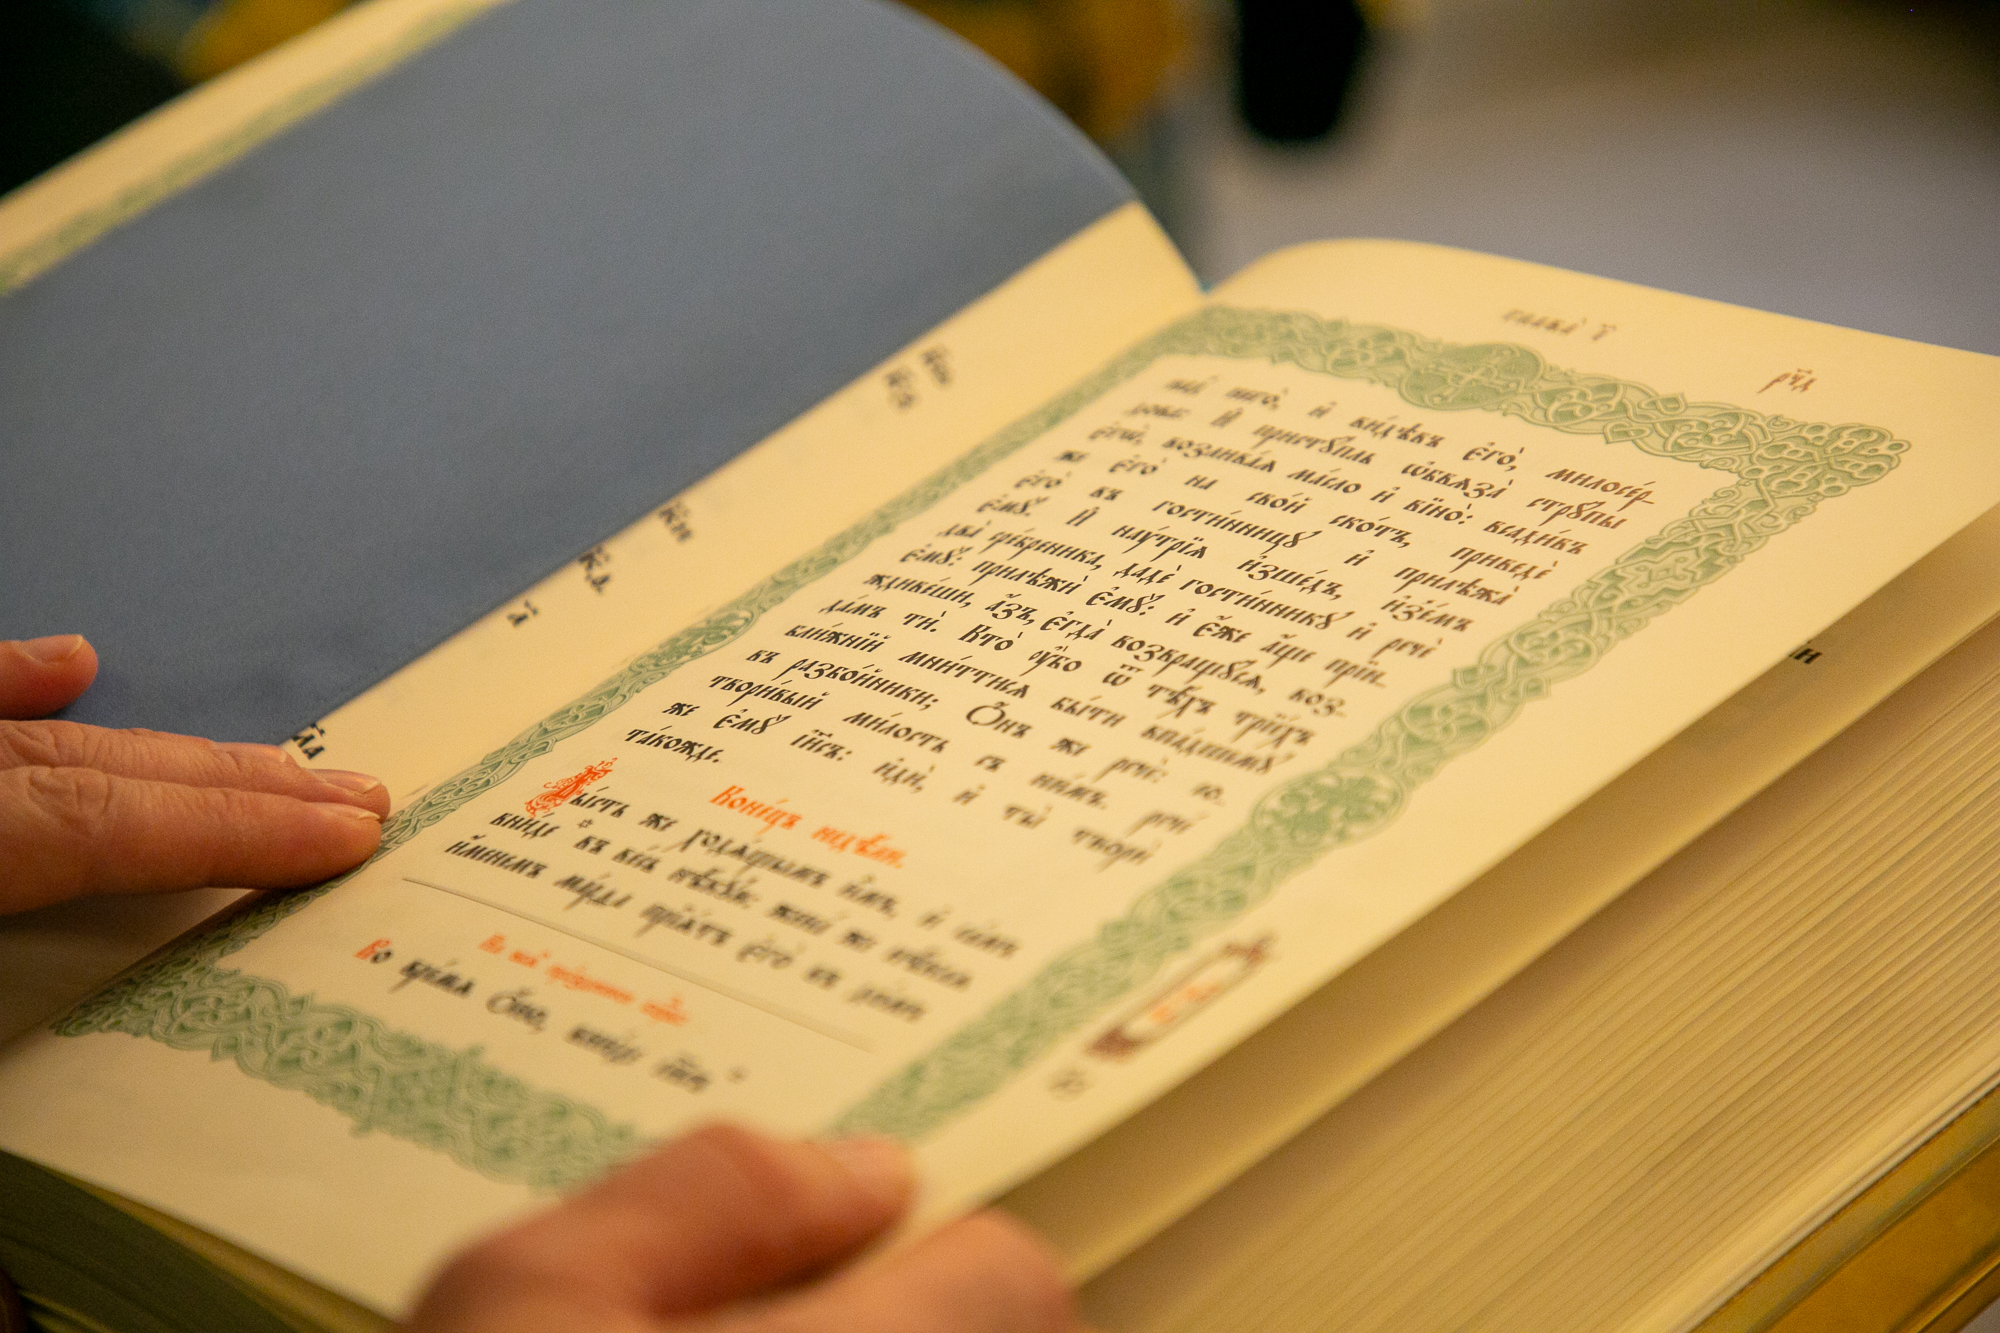 глава̀ і҃
рч҃д
него̀, и҆ ви́дѣвъ є҆го̀, милосе́р-
дова: И҆ присту́пль ѡ҆бвѧза̀ стру́пы
є҆гѡ̀, возлива́ѧ ма́сло и҆ вїно̀: всади́въ
же є҆го̀ на сво́й ско́тъ, приведѐ
є҆го̀ въ гости́нницꙋ и҆ прилѣжа̀
є҆мꙋ̀. И҆ наꙋ́трїѧ и҆зше́дъ, и҆зе́мъ
два̀ сре́бреника, дадѐ гости́нникꙋ и҆ речѐ
є҆мꙋ̀: прилѣжѝ є҆мꙋ̀: и҆ є҆́же а҆́ще прїи-
ждиве́ши, а҆́зъ, є҆гда̀ возвращꙋ́сѧ, воз-
да́мъ тѝ. Кто̀ ᲂу҆̀бо ѿ тѣ́хъ трїе́хъ
бли́жнїй мни́ттисѧ бы́ти впа́дшемꙋ
въ разбо́йники; Ѻ҆́нъ же речѐ: со-
твори́вый ми́лость съ ни́мъ. рече́
же є҆мꙋ̀ і҆и҃съ: и҆дѝ, и҆ ты̀ творѝ
та́кожде.
Коне́цъ недѣ́ли.
Бы́сть же ходѧ́щымъ и҆̀мъ, и҆ са́мъ
вни́де въ ве́сь нѣ́кꙋю: жена́ же нѣ́каѧ
и҆́менемъ ма́рѳа прїѧ́тъ є҆го̀ въ до́мъ
Во вре́мѧ ѻ҆́но, вни́де і҆и҃съ